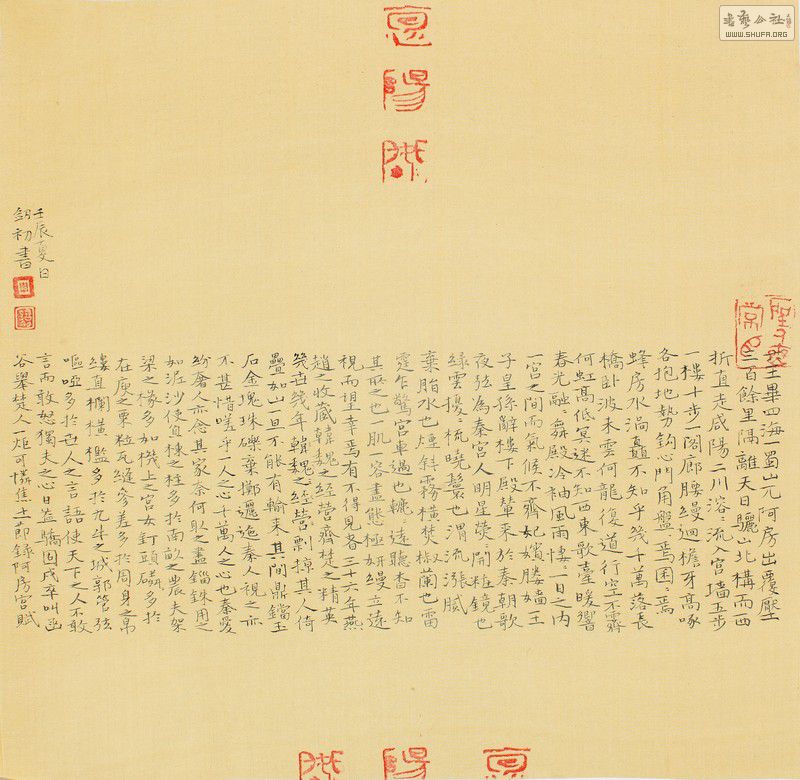 六王畢四海一蜀山兀阿房出覆壓
三百餘里隔離天日驪山北構而西
折直走咸陽二川溶〻流入宮墻五步
一樓十步一閣廊腰縵迴檐牙高啄
各抱地勢鈎心鬥角盤〻焉囷〻焉
蜂房水渦矗不知乎幾千萬落長
橋臥波未雲何龍復道行空不霽
何虹高低冥迷不知西東歌臺暖響
春光融〻舞殿冷袖風雨悽一日之內
一宮之間而氣候不齊妃嬪媵嬙王
子皇孫辭樓下殿輦來於秦朝歌
夜弦為秦宮人明星熒〻開粧鏡也
綠雲擾梳曉鬟也渭流漲膩
棄脂水也煙斜霧橫焚椒蘭也雷
霆乍驚宮車過也轆〻遠聽杳不知
其所之也一肌一容盡態極妍縵立遠
視而望幸焉有不得見者三十六年燕
趙之收藏韓魏經營齊楚之精英
幾世幾年韓魏之經營剽掠其人倚
疊如山一旦不能有輸來其間鼎鐺玉
石金塊珠礫棄擲邐迤秦人視之亦
不甚惜嗟乎一人之心千萬人之心也秦愛
紛奢人亦念其家奈何取之盡錙銖用之
如泥沙使負棟之柱多於南畝之農夫架
梁之椽多如機上之宮女釘頭磷多於
在庾之粟粒瓦縫參差多於周身之帛
縷直欄橫檻多於九牛之城郭管弦
嘔啞多於世人之言語使天下之人不敢
言而敢怒獨夫之心日益驕固戍卒叫函
谷舉楚人一炬可憐焦土節錄阿房宮賦
壬辰夏日
紹初書
書藝公社
WWW.SHUFA.ORG